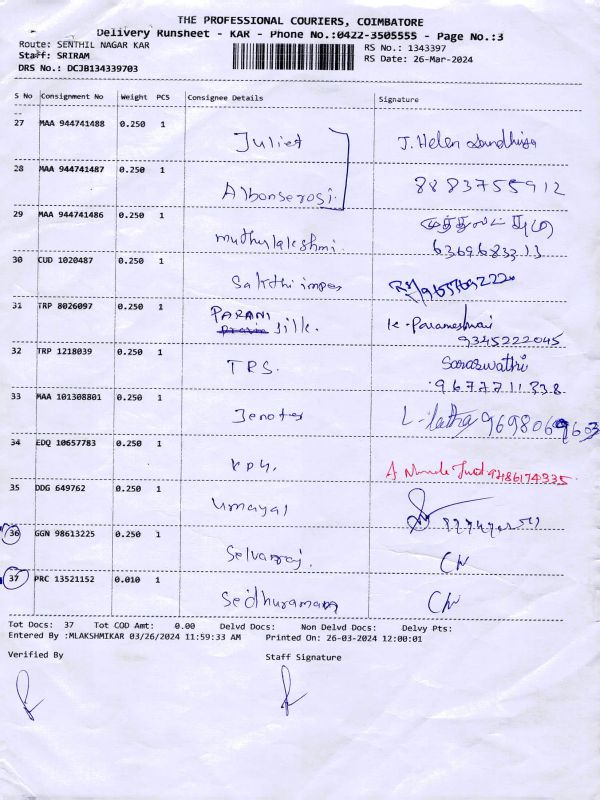 THE PROFESSIONAL COURIERS, COIMBATORE
Delivery Runsheet - KAR - Phone No.:0422-3505555 - Page No.:3
Route: SENTHIL NAGAR KAR
RS No.: 1343397
Staff: SRIRAM
RS Date: 26-Mar-2024
DRS No.: DCJB134339703
S No Consignment No Weight PCS Consignee Details Signature
27 MAA 944741488 0.250 1 Juliet J. Helen
28 MAA 944741487 0.250 1 Albonserosi 8883755912
29 MAA 944741486 0.250 1 muthulakshmi. 6369683313
30 CUD 1020487 0.250 1 Sakthi impex
31 TRP 8026097 0.250 1 PARANI silk. K. Parameshwari
9345222045
32 TRP 1218039 0.250 1 TRS. Saraswathi
9677711338
33 MAA 101308801 0.250 1 Jenotex L-latha
34 EDQ 10657783 0.250 1 KPN. 9486174935
35 DDG 649762 0.250 1 Umayal
36 GGN 98613225 0.250 1 Selvaraj. CN
37 PRC 13521152 0.010 1 Sedhuraman CN
Tot Docs: 37 Tot COD Amt: 0.00 Delvd Docs: Non Delvd Docs: Delvy Pts:
Entered By :MLAKSHMIKAR 03/26/2024 11:59:33 AM Printed On: 26-03-2024 12:00:01
Verified By Staff Signature